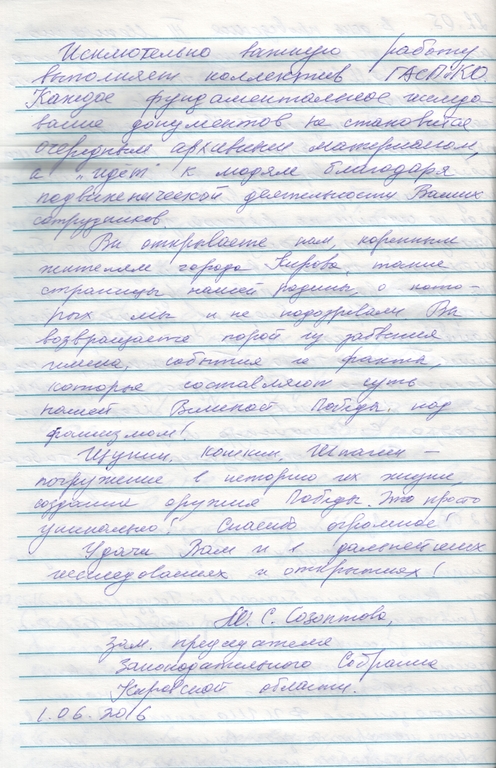 Исключительно важную работу
выполняет коллектив ГАСПИКО.
Каждое фундаментальное исследо-
вание документов не становится
очередным архивным материалом,
а "идет" к людям благодаря
подвижнической деятельности Ваших
сотрудников.
Вы открываете нам, коренным
жителям города Кирова, такие
страницы нашей Родины, о кото-
рых мы и не подозревали. Вы
возвращаете порой из забвения
имена, события и факты,
которые составляют суть
нашей Великой Победы над
фашизмом!
Щукин, Кошкин, Шпагин –
погружение в историю их жизни,
создание оружия Победы. Это просто
уникально! Спасибо огромное!
Удачи Вам и в дальнейших
исследованиях и открытиях!
Ю. С.
Зам. председателя
Законодательного Собрания
Кировской области.
1.06.2016